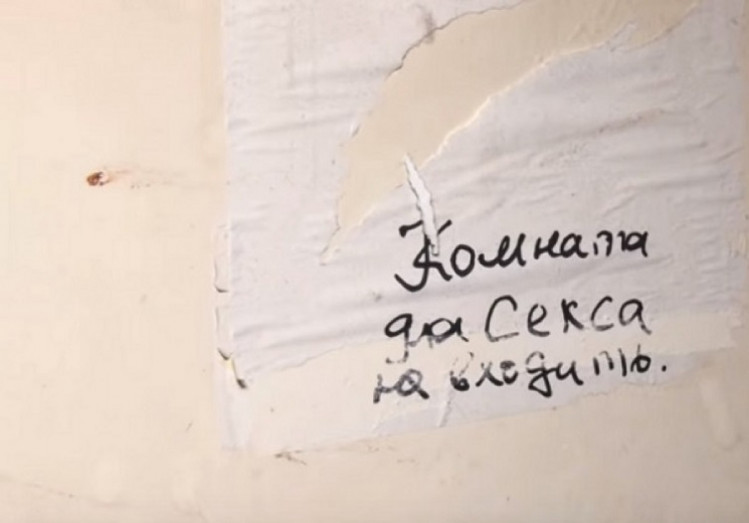 Комната
для Секса
на входить.